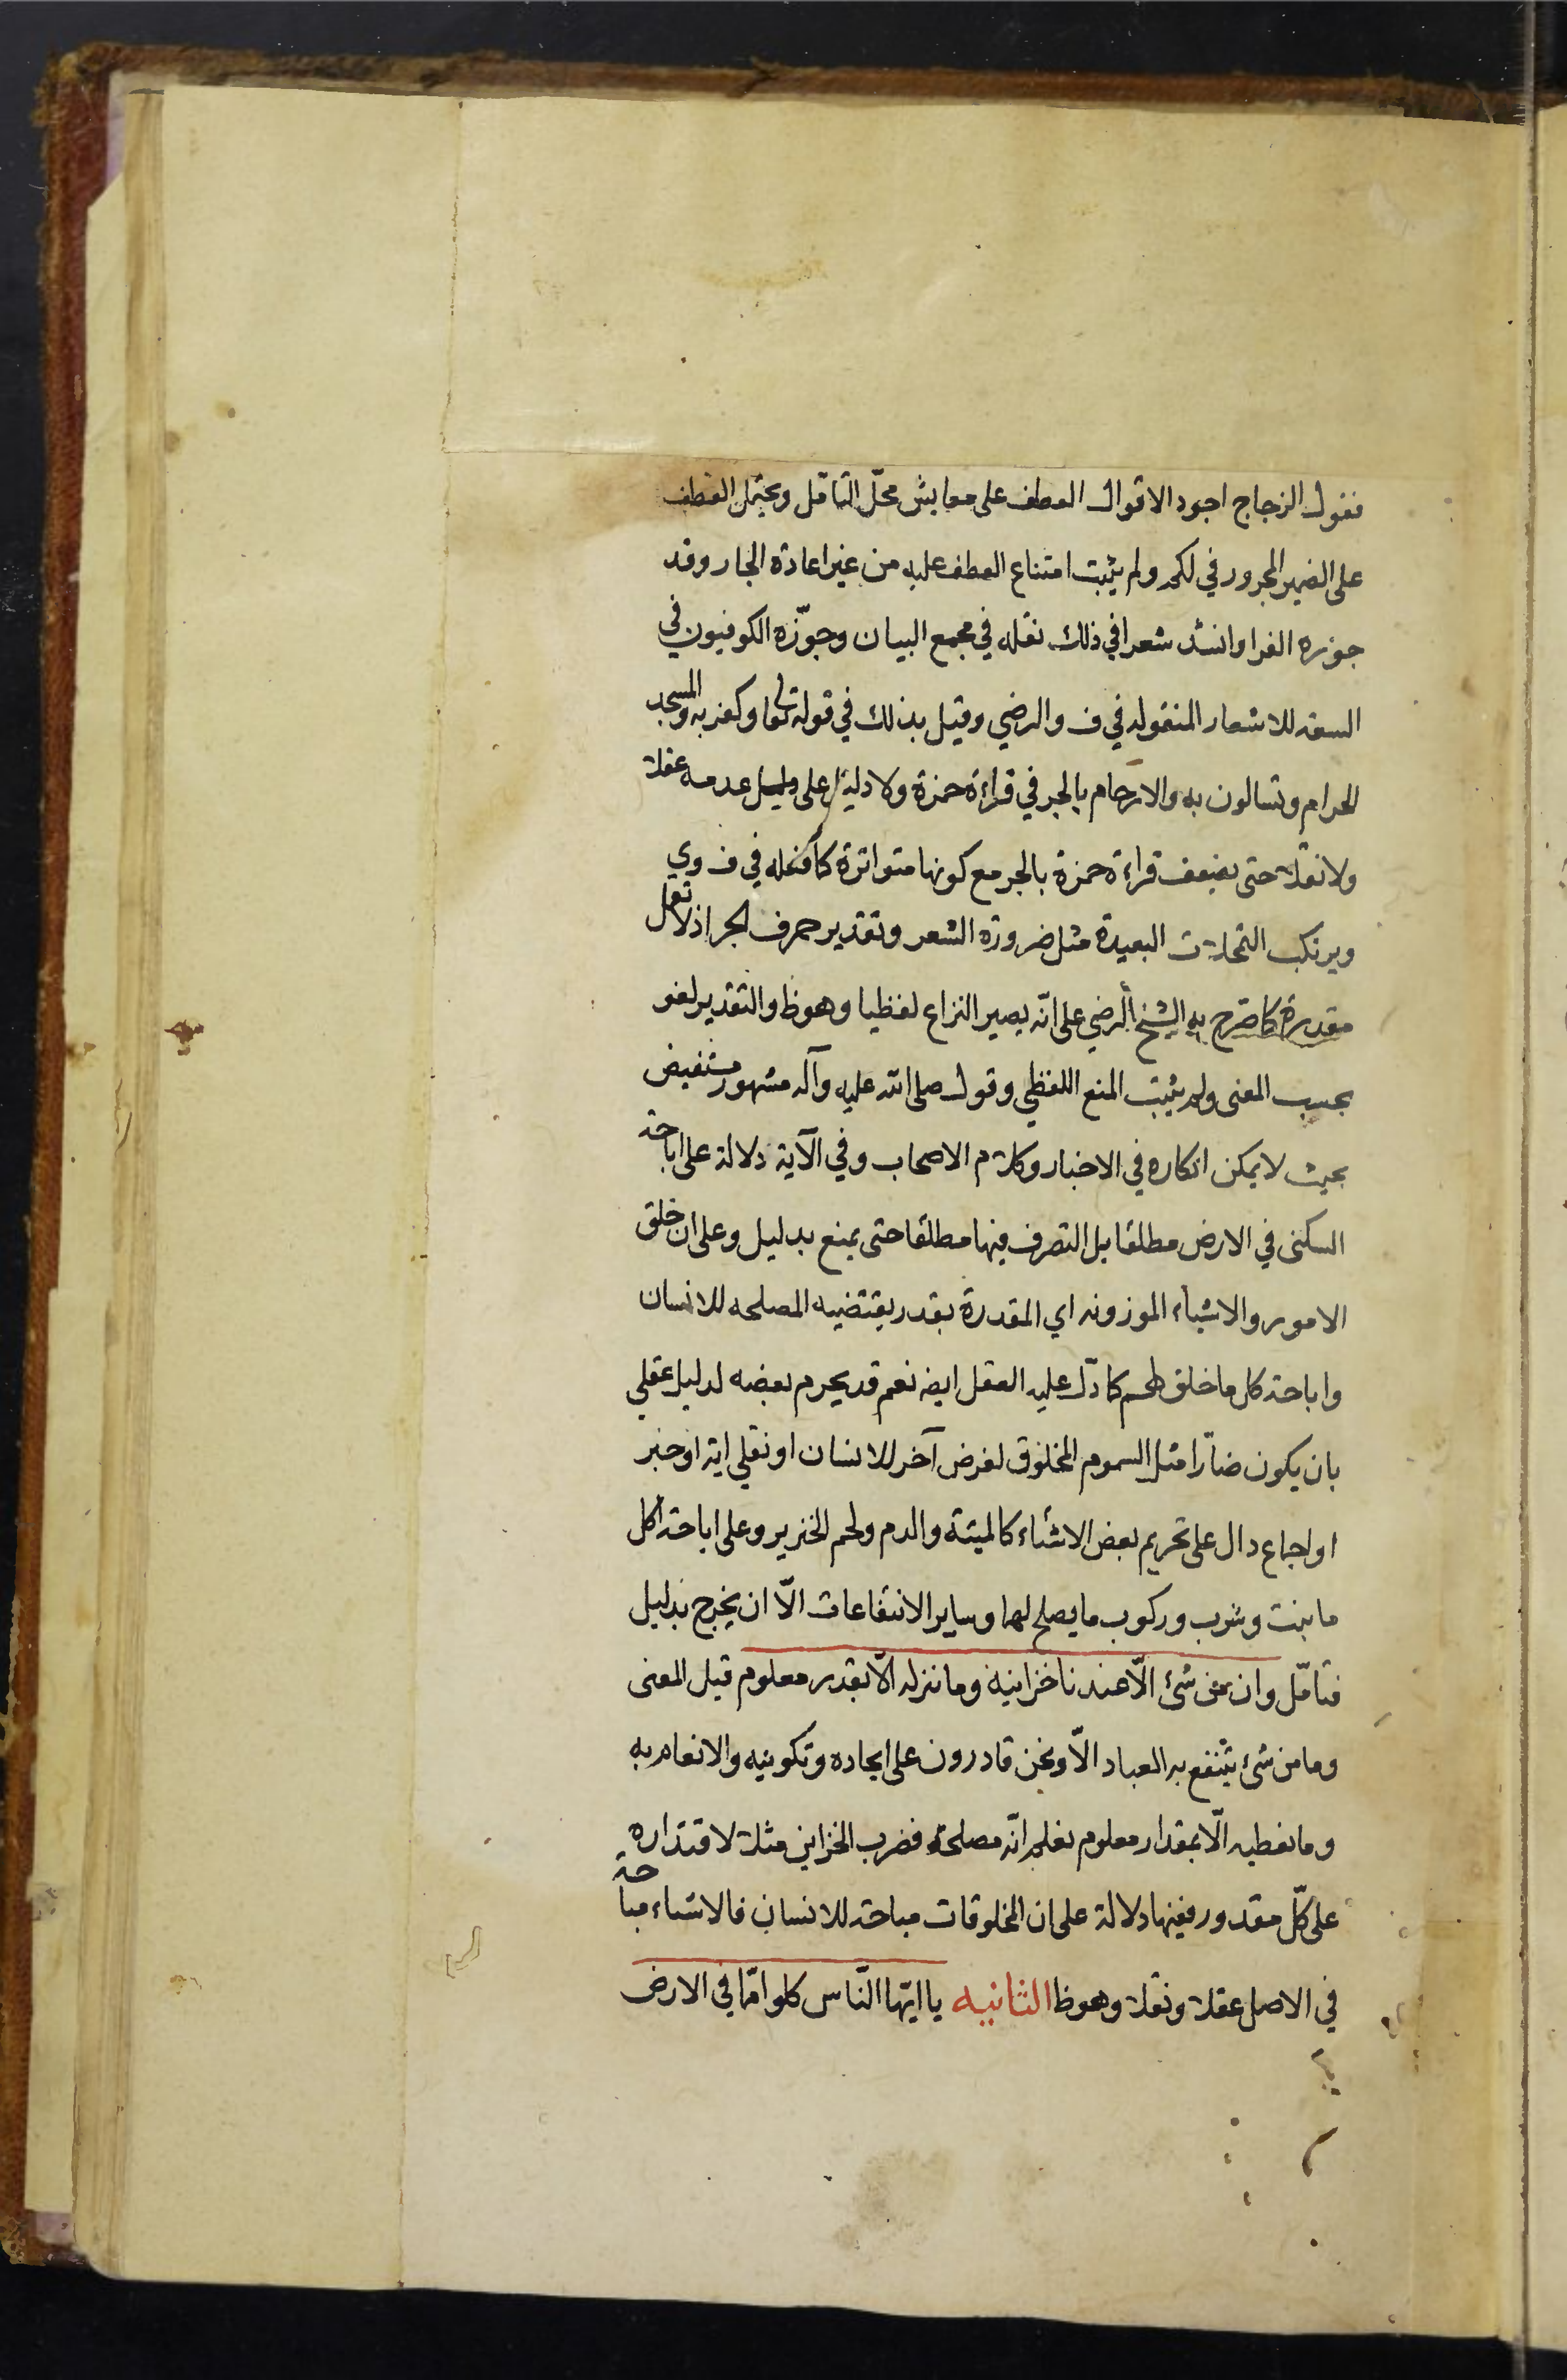 فقول الزجاج اجود الاقوال العطف على معايش محلّ التامّل ويحتمل العطف
على الضمير المجرور في لكم ولم يثبت امتناع العطف عليه من غير اعادة الجار وقد
جوزه الفرا وانشد شعرا في ذلك نقله في مجمع البيان وجوّزه الكوفيون في
السعه للاشعار المنقوله في ف والرضي وقيل بذلك في قوله تعا وكفر به والمسجد
الحرام وتسالون به والارحام بالجر في قراءة حمزة ولا دليل على عدمه عقلا
ولا نقلا حتى يضعف قراءة حمزة بالجر مع كونها متواترة كما فعله في ف وي
ويرتكب التمحلات البعيدة مثل ضرورة الشعر وتقدير حرف الجر اذ لا تعمل
مقدرة كما صرح به الشيخ الرضي على انّه يصير النزاع لفظيا وهو ظ والتقدير لغو
بحسب المعنى ولم يثبت المنع اللفظي وقول صلى الله عليه وآله مشهور مستفيض
بحيث لا يمكن انكاره في الاخبار وكلام الاصحاب وفي الآية دلالة على اباحة
السكنى في الارض مطلقا بل التصرف فيها مطلقا حتى يمنع بدليل وعلى ان خلق
الامور والاشياء الموزونه اي المقدرة بقدر يقتضيه المصلحه للانسان
واباحة كل ما خلق لهم كما دّل عليه العقل ايضه نعم قد يحرم بعضه لدليل عقلي
بان يكون ضاّرا مثل السموم المخلوق لغرض آخر للانسان او نقلي اية او خبر
او اجماع دال على تحريم بعض الاشياء كالميتة والدم ولحم الخنزير وعلى اباحة اكل
ما ينبت وشرب وركوب ما يصلح لهما وساير الانتفاعات الّا ان يخرج بدليل
فتامّل وان من شئ الّا عندنا خزاينه وما ننزله الّا بقدر معلوم قيل المعنى
وما من شئ ينتفع به العباد الّا ونحن قادرون على ايجاده وتكوينه والانعام به
وما نعطيه الّا بمقدار معلوم نعلم انّه مصلحة فضرب الخزاين مثلا لاقتداره
على كلّ مقدور ففيها دلالة على ان المخلوقات مباحة للانسان فالاشياء مباحة
في الاصل عقلا ونقلا وهو ظ الثانيه يا ايّها النّاس كلوا ممّا في الارض